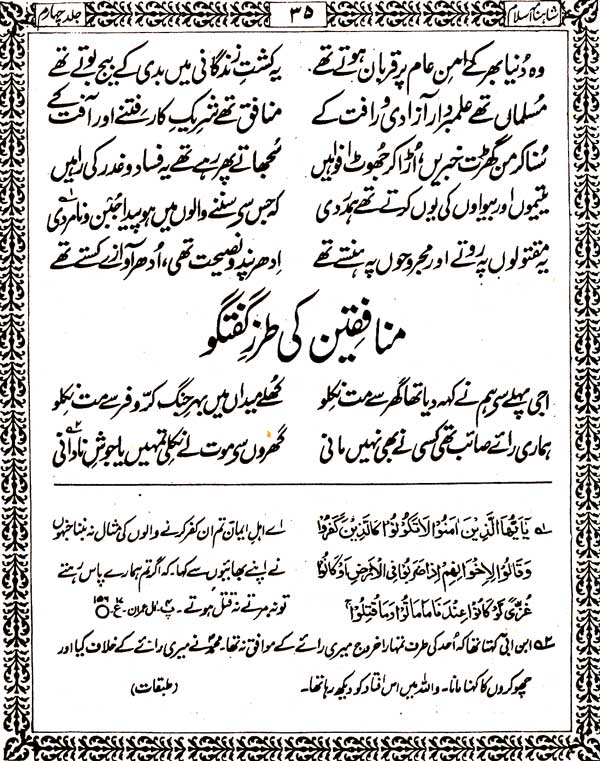 شاہنامۂ اسلام ۳۵ جلد چہارم
وہ دُنیا بھر کے امنِ عام پر قربان ہوتے تھے یہ کشتِ زندگانی میں بدی کے بیج بوتے تھے
مُسلماں تھے علمبردار آزادی و رافت کے منافق تھے شریکِ کار فتنے اور آفت کے
سُنا کر من گھڑت خبریں اُڑا کر جھوٹ افواہیں سُجھاتے پھر رہے تھے یہ فساد و غدر کی راہیں
یتیموں اور بیواوں کی یوں کرتے تھے ہمدردی کہ جس سے سننے والوں میں ہو پیدا جُبن و نامردی ۱؎
یہ مقتولوں پہ روتے اور مجروحوں پہ ہنستے تھے اِدھر پند و نصیحت تھی، اُدھر آوازے کستے تھے
منافقین کی طرزِ گفتگو
اجی پہلے ہی ہم نے کہہ دیا تھا گھر سے مت نِکلو کھُلے میداں میں بہرِ جنگ کرّ و فر سے مت نِکلو
ہماری رائے صائب تھی کسی نے بھی نہیں مانی گھروں سے موت لے نکلی تمہیں یا جوشِ نادانی ۲؎
۱؎ يٰٓاَيُّهَا الَّذِيْنَ اٰمَنُوْا لَا تَكُوْنُوْا كَالَّذِيْنَ كَفَرُوْا اے اہلِ ایمان تم ان کفر کرنے والوں کی مثال نہ بننا جنہوں
وَقَالُوْا لِاِخْوَانِهِمْ اِذَا ضَرَبُوْا فِي الْاَرْضِ اَوْ كَانُوْا نے اپنے بھائیوں سے کہا۔ کہ اگر تم ہمارے پاس رہتے
غُزًّى لَّوْ كَانُوْا عِنْدَنَا مَا مَاتُوْا وَمَا قُتِلُوْا تو نہ مرتے نہ قتل ہوتے۔ پ۴۔ آل عمران۔ ع۔ ۱۵۶
۲؎ ابن اُبیّ کہتا تھا کہ اُحد کی طرف تمہارا خروج میری رائے کے موافق نہ تھا۔ محمدؐ نے میری رائے کے خلاف کیا اور
چھوکروں کا کہنا مانا۔ واللہ میں اس افتاد کو دیکھ رہا تھا۔ (طبقات)